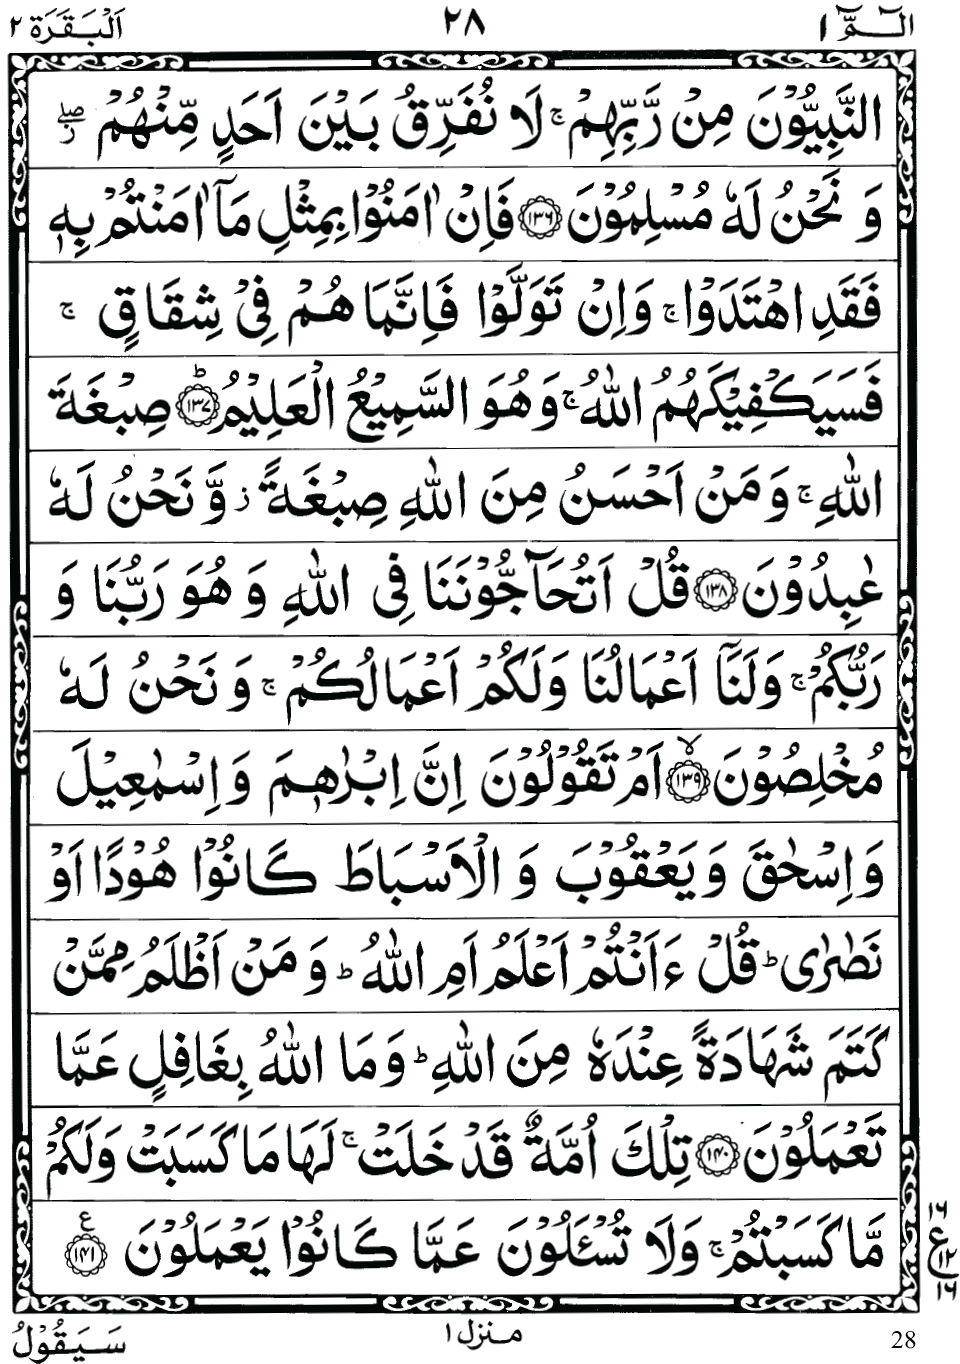 الٓـمّٓ ١
٢٨
اَلْبَقَرَة ٢
النَّبِيُّوْنَ مِنْ رَّبِّهِمْ ۚ لَا نُفَرِّقُ بَيْنَ اَحَدٍ مِّنْهُمْ ۖز
وَ نَحْنُ لَهٗ مُسْلِمُوْنَ ﴿١٣٦﴾ فَاِنْ اٰمَنُوْا بِمِثْلِ مَاۤ اٰمَنْتُمْ بِهٖ
فَقَدِ اهْتَدَوْا ۚ وَاِنْ تَوَلَّوْا فَاِنَّمَا هُمْ فِیْ شِقَاقٍ ۚ
فَسَيَكْفِيْكَهُمُ اللّٰهُ ۚ وَهُوَ السَّمِيْعُ الْعَلِيْمُ ؕ﴿١٣٧﴾ صِبْغَةَ
اللّٰهِ ۚ وَمَنْ اَحْسَنُ مِنَ اللّٰهِ صِبْغَةً ز وَّ نَحْنُ لَهٗ
عٰبِدُوْنَ ﴿١٣٨﴾ قُلْ اَتُحَآجُّوْنَنَا فِی اللّٰهِ وَ هُوَ رَبُّنَا وَ
رَبُّكُمْ ۚ وَلَنَاۤ اَعْمَالُنَا وَلَكُمْ اَعْمَالُكُمْ ۚ وَ نَحْنُ لَهٗ
مُخْلِصُوْنَ ۙ﴿١٣٩﴾ اَمْ تَقُوْلُوْنَ اِنَّ اِبْرٰهٖمَ وَ اِسْمٰعِيْلَ
وَ اِسْحٰقَ وَ يَعْقُوْبَ وَ الْاَسْبَاطَ كَانُوْا هُوْدًا اَوْ
نَصٰرٰی ؕ قُلْ ءَاَنْتُمْ اَعْلَمُ اَمِ اللّٰهُ ؕ وَ مَنْ اَظْلَمُ مِمَّنْ
كَتَمَ شَهَادَةً عِنْدَهٗ مِنَ اللّٰهِ ؕ وَ مَا اللّٰهُ بِغَافِلٍ عَمَّا
تَعْمَلُوْنَ ﴿١٤٠﴾ تِلْكَ اُمَّةٌ قَدْ خَلَتْ ۚ لَهَا مَا كَسَبَتْ وَلَكُمْ
مَّا كَسَبْتُمْ ۚ وَلَا تُسْـَٔلُوْنَ عَمَّا كَانُوْا يَعْمَلُوْنَ ﴿١٤١﴾ ع
١٦
ع
١٢
١٦
28
منزل ١
سَيَقُوْلُ